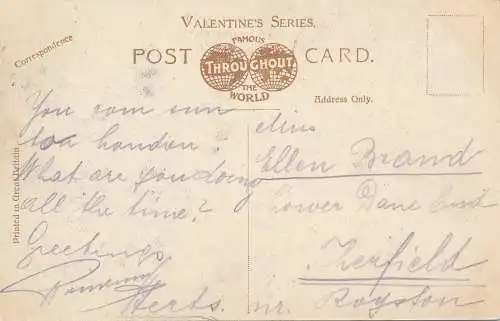 VALENTINE'S SERIES.
FAMOUS
POST THROUGHOUT CARD.
THE WORLD
Correspondence
Address Only.
Printed in Great Britain
You can run
too London!
What are you doing
all the time?
Greetings
Herts.
Miss
Ellen Brand
Lower Dane End
Therfield
nr. Royston